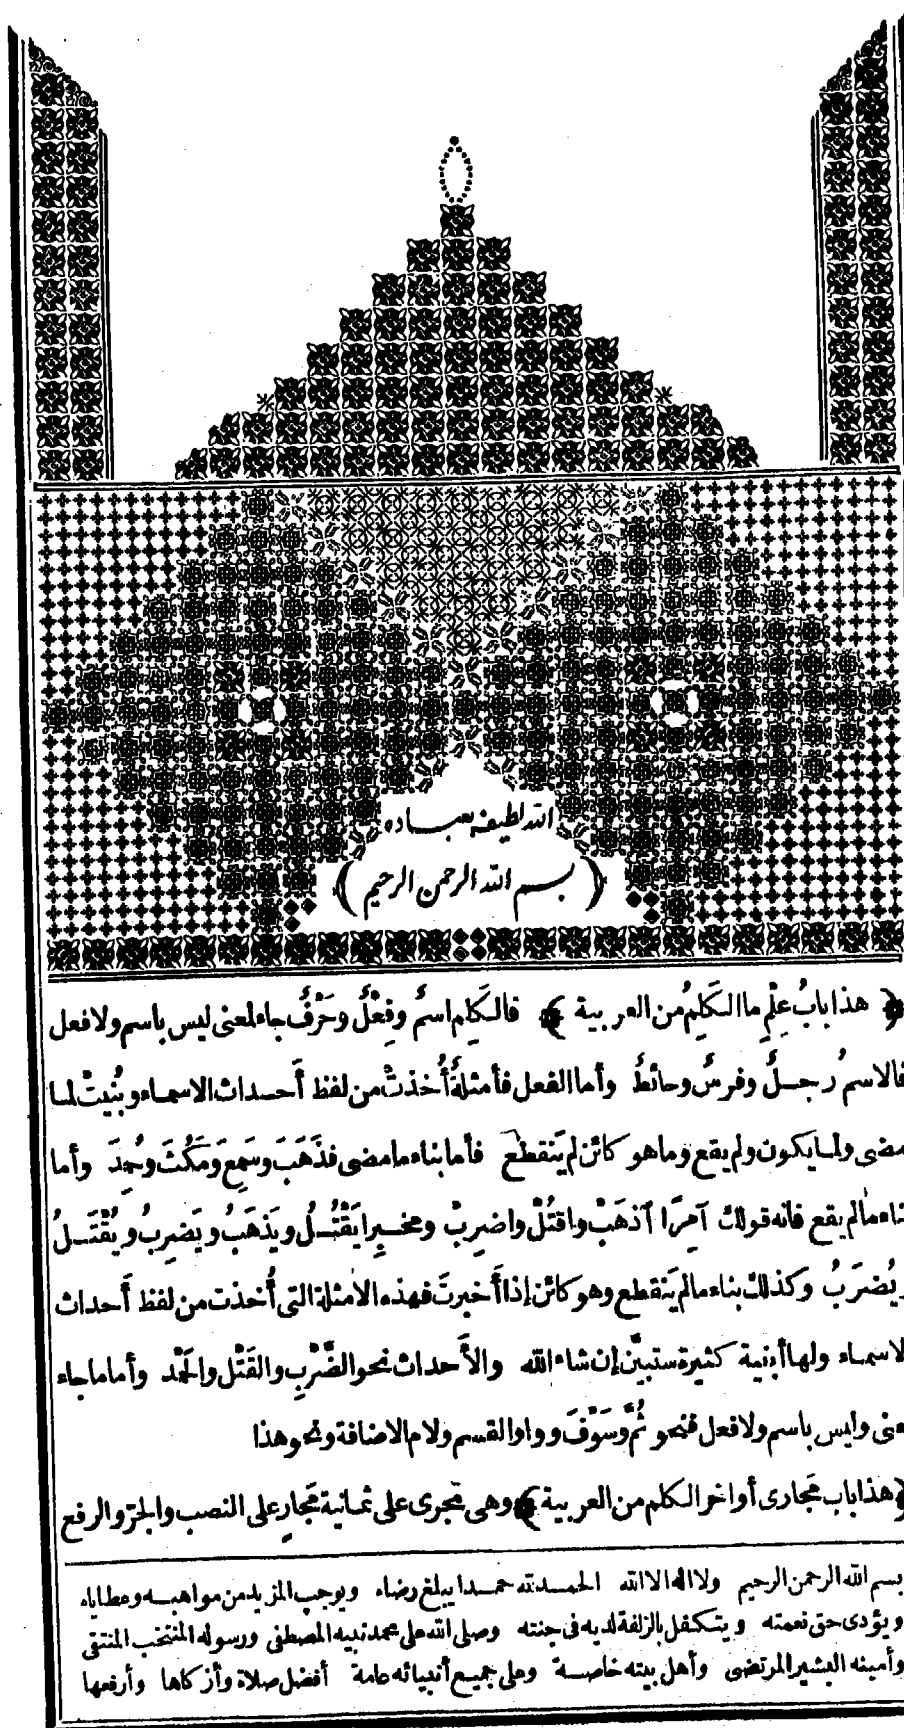 الله لطيف بعباده
﴿ بسم الله الرحمن الرحيم ﴾
﴿ هذا بابُ عِلْمِ ما الكَلِمُ من العربية ﴾ فالكَلِم اسمٌ وفِعْلٌ وحَرْفٌ جاء لمعنى ليس باسم ولا فعل
فالاسم رُجــلٌ وفرسٌ وحائطٌ وأما الفعل فأمثلةٌ أُخذتْ من لفظ أَحــداث الاسماء وبُنيتْ لمـا
مضى ولمـا يكون ولم يقع وما هو كائن لم يَنقطع فأما بناء ما مضى فذَهَبَ وسَمِعَ ومَكُثَ وحُمِدَ وأما
بناء ما لم يقع فانه قولك آمِرًا آذهَبْ واقتُلْ واضرِبْ ومخبِرا يَقْتُــلُ ويَذهَبُ ويَضرِبُ ويُقْتَــلُ
ويُضرَبُ وكذلك بناء ما لم يَنقطع وهو كائن إذا أَخبرتَ فهذه الأمثلة التى أُخذت من لفظ أَحداث
الاسماء ولها أبنية كثيرة ستبيَّن إن شاء الله والأَحداث نحو الضَّرْبِ والقَتْل والحَمْد وأما ما جاء
لمعنى وليس باسم ولا فعل فنحو ثُمَّ وسَوْفَ وواو القسم ولام الاضافة ونحو هذا
﴿ هذا باب مَجارى أواخر الكلم من العربية ﴾ وهى تجرى على ثمانية مَجارٍ على النصب والجرّ والرفع
بسم الله الرحمن الرحيم ولا اله الا الله الحمــد لله حمــدا يبلغ رضاه ويوجب المزيد من مواهبــه وعطاياه
ويؤدى حق نعمته ويتكفل بالزلفة لديه فى جنته وصلى الله على محمد نبيه المصطفى ورسوله المنتخب المنتقى
وأمينه البشير المرتضى وأهل بيته خاصــة وعلى جميع أنبيائه عامة أفضل صلاة وأزكاها وأرفعها